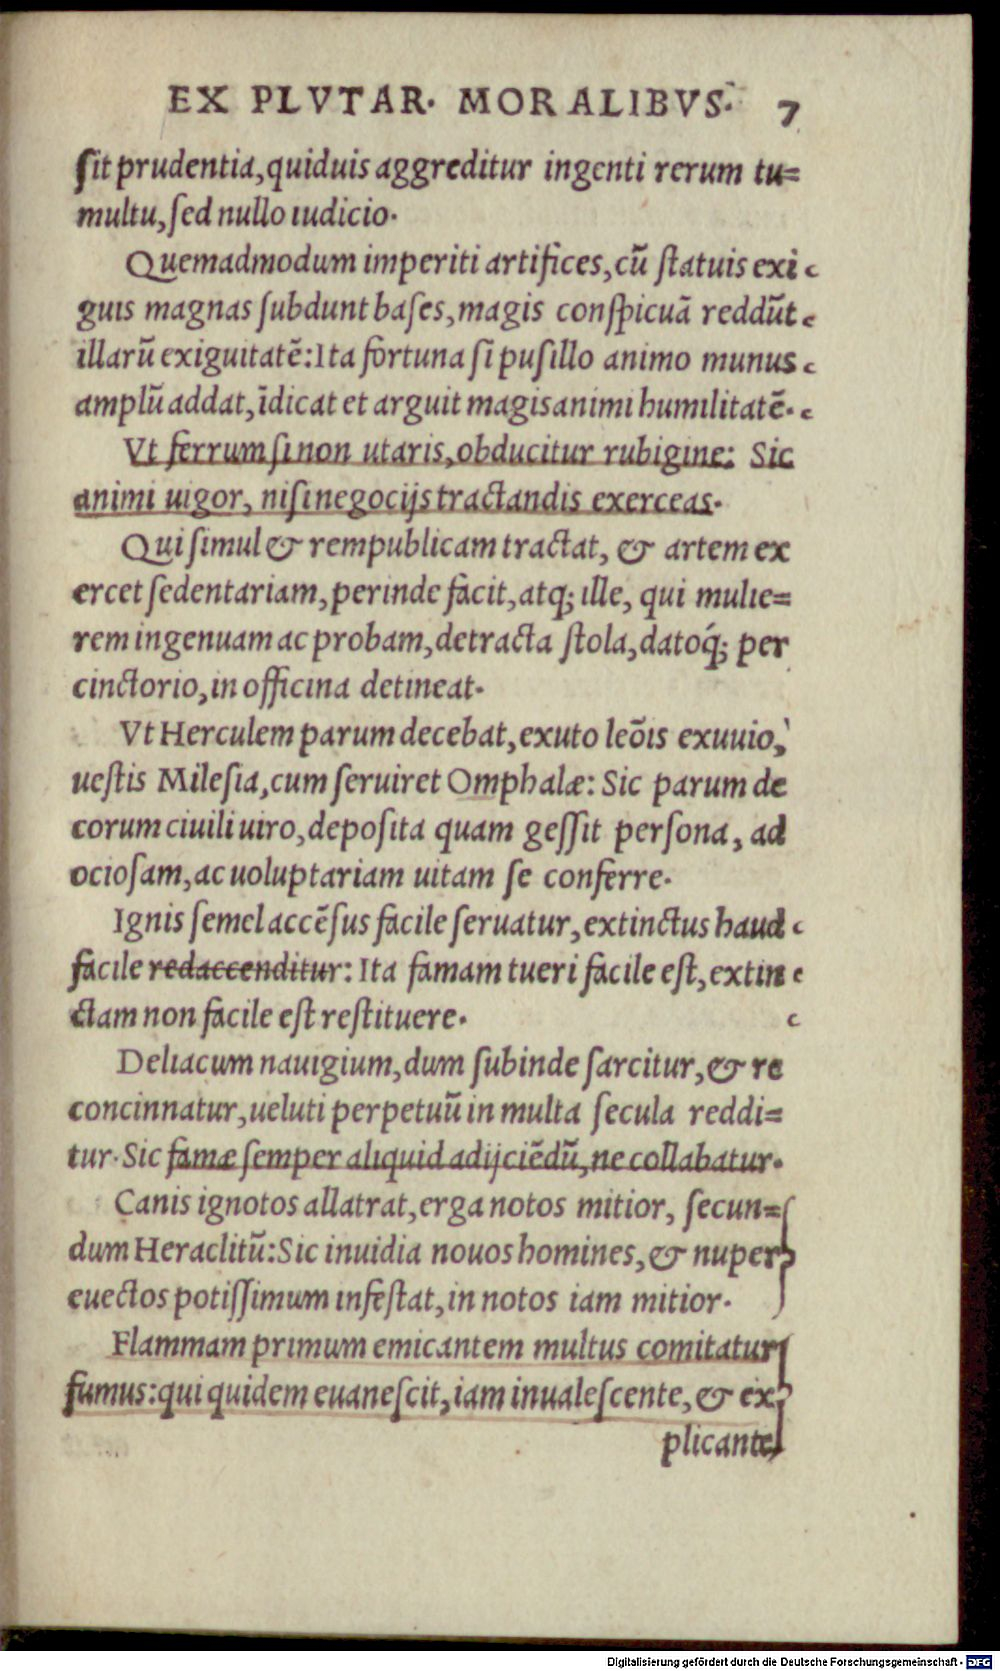 EX PLVTAR. MORALIBVS. 7
ſit prudentia, quiduis aggreditur ingenti rerum tu=
multu, ſed nullo iudicio.
Quemadmodum imperiti artifices, cū ſtatuis exi
guis magnas ſubdunt baſes, magis conſpicuā reddūt
illarū exiguitatē: Ita fortuna ſi puſillo animo munus
amplū addat, īdicat et arguit magis animi humilitatē.
Vt ferrum ſi non utaris, obducitur rubigine: Sic
animi uigor, niſi negocijs tractandis exerceas.
Qui ſimul & rempublicam tractat, & artem ex
ercet ſedentariam, perinde facit, atq; ille, qui mulie=
rem ingenuam ac probam, detracta ſtola, datoq́; per
cinctorio, in officina detineat.
Vt Herculem parum decebat, exuto leōis exuuio,
ueſtis Mileſia, cum ſeruiret Omphalæ: Sic parum de
corum ciuili uiro, depoſita quam geſſit perſona, ad
ocioſam, ac uoluptariam uitam ſe conferre.
Ignis ſemel accēſus facile ſeruatur, extinctus haud
facile redaccenditur: Ita famam tueri facile eſt, extin
ctam non facile eſt reſtituere.
Deliacum nauigium, dum ſubinde ſarcitur, & re
concinnatur, ueluti perpetuū in multa ſecula reddi=
tur. Sic famæ ſemper aliquid adijciēdū, ne collabatur.
Canis ignotos allatrat, erga notos mitior, ſecun=
dum Heraclitū: Sic inuidia nouos homines, & nuper
euectos potiſſimum infeſtat, in notos iam mitior.
Flammam primum emicantem multus comitatur
fumus: qui quidem euaneſcit, iam inualeſcente, & ex
plicante
Digitalisierung gefördert durch die Deutsche Forschungsgemeinschaft - DFG